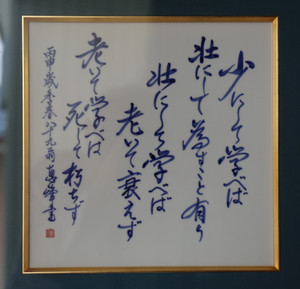 少にして学べば
壮にして為すこと有り
壮にして学べば
老いて衰えず
老いて学べば
死して朽ちず
丙申歳季春八十九翁